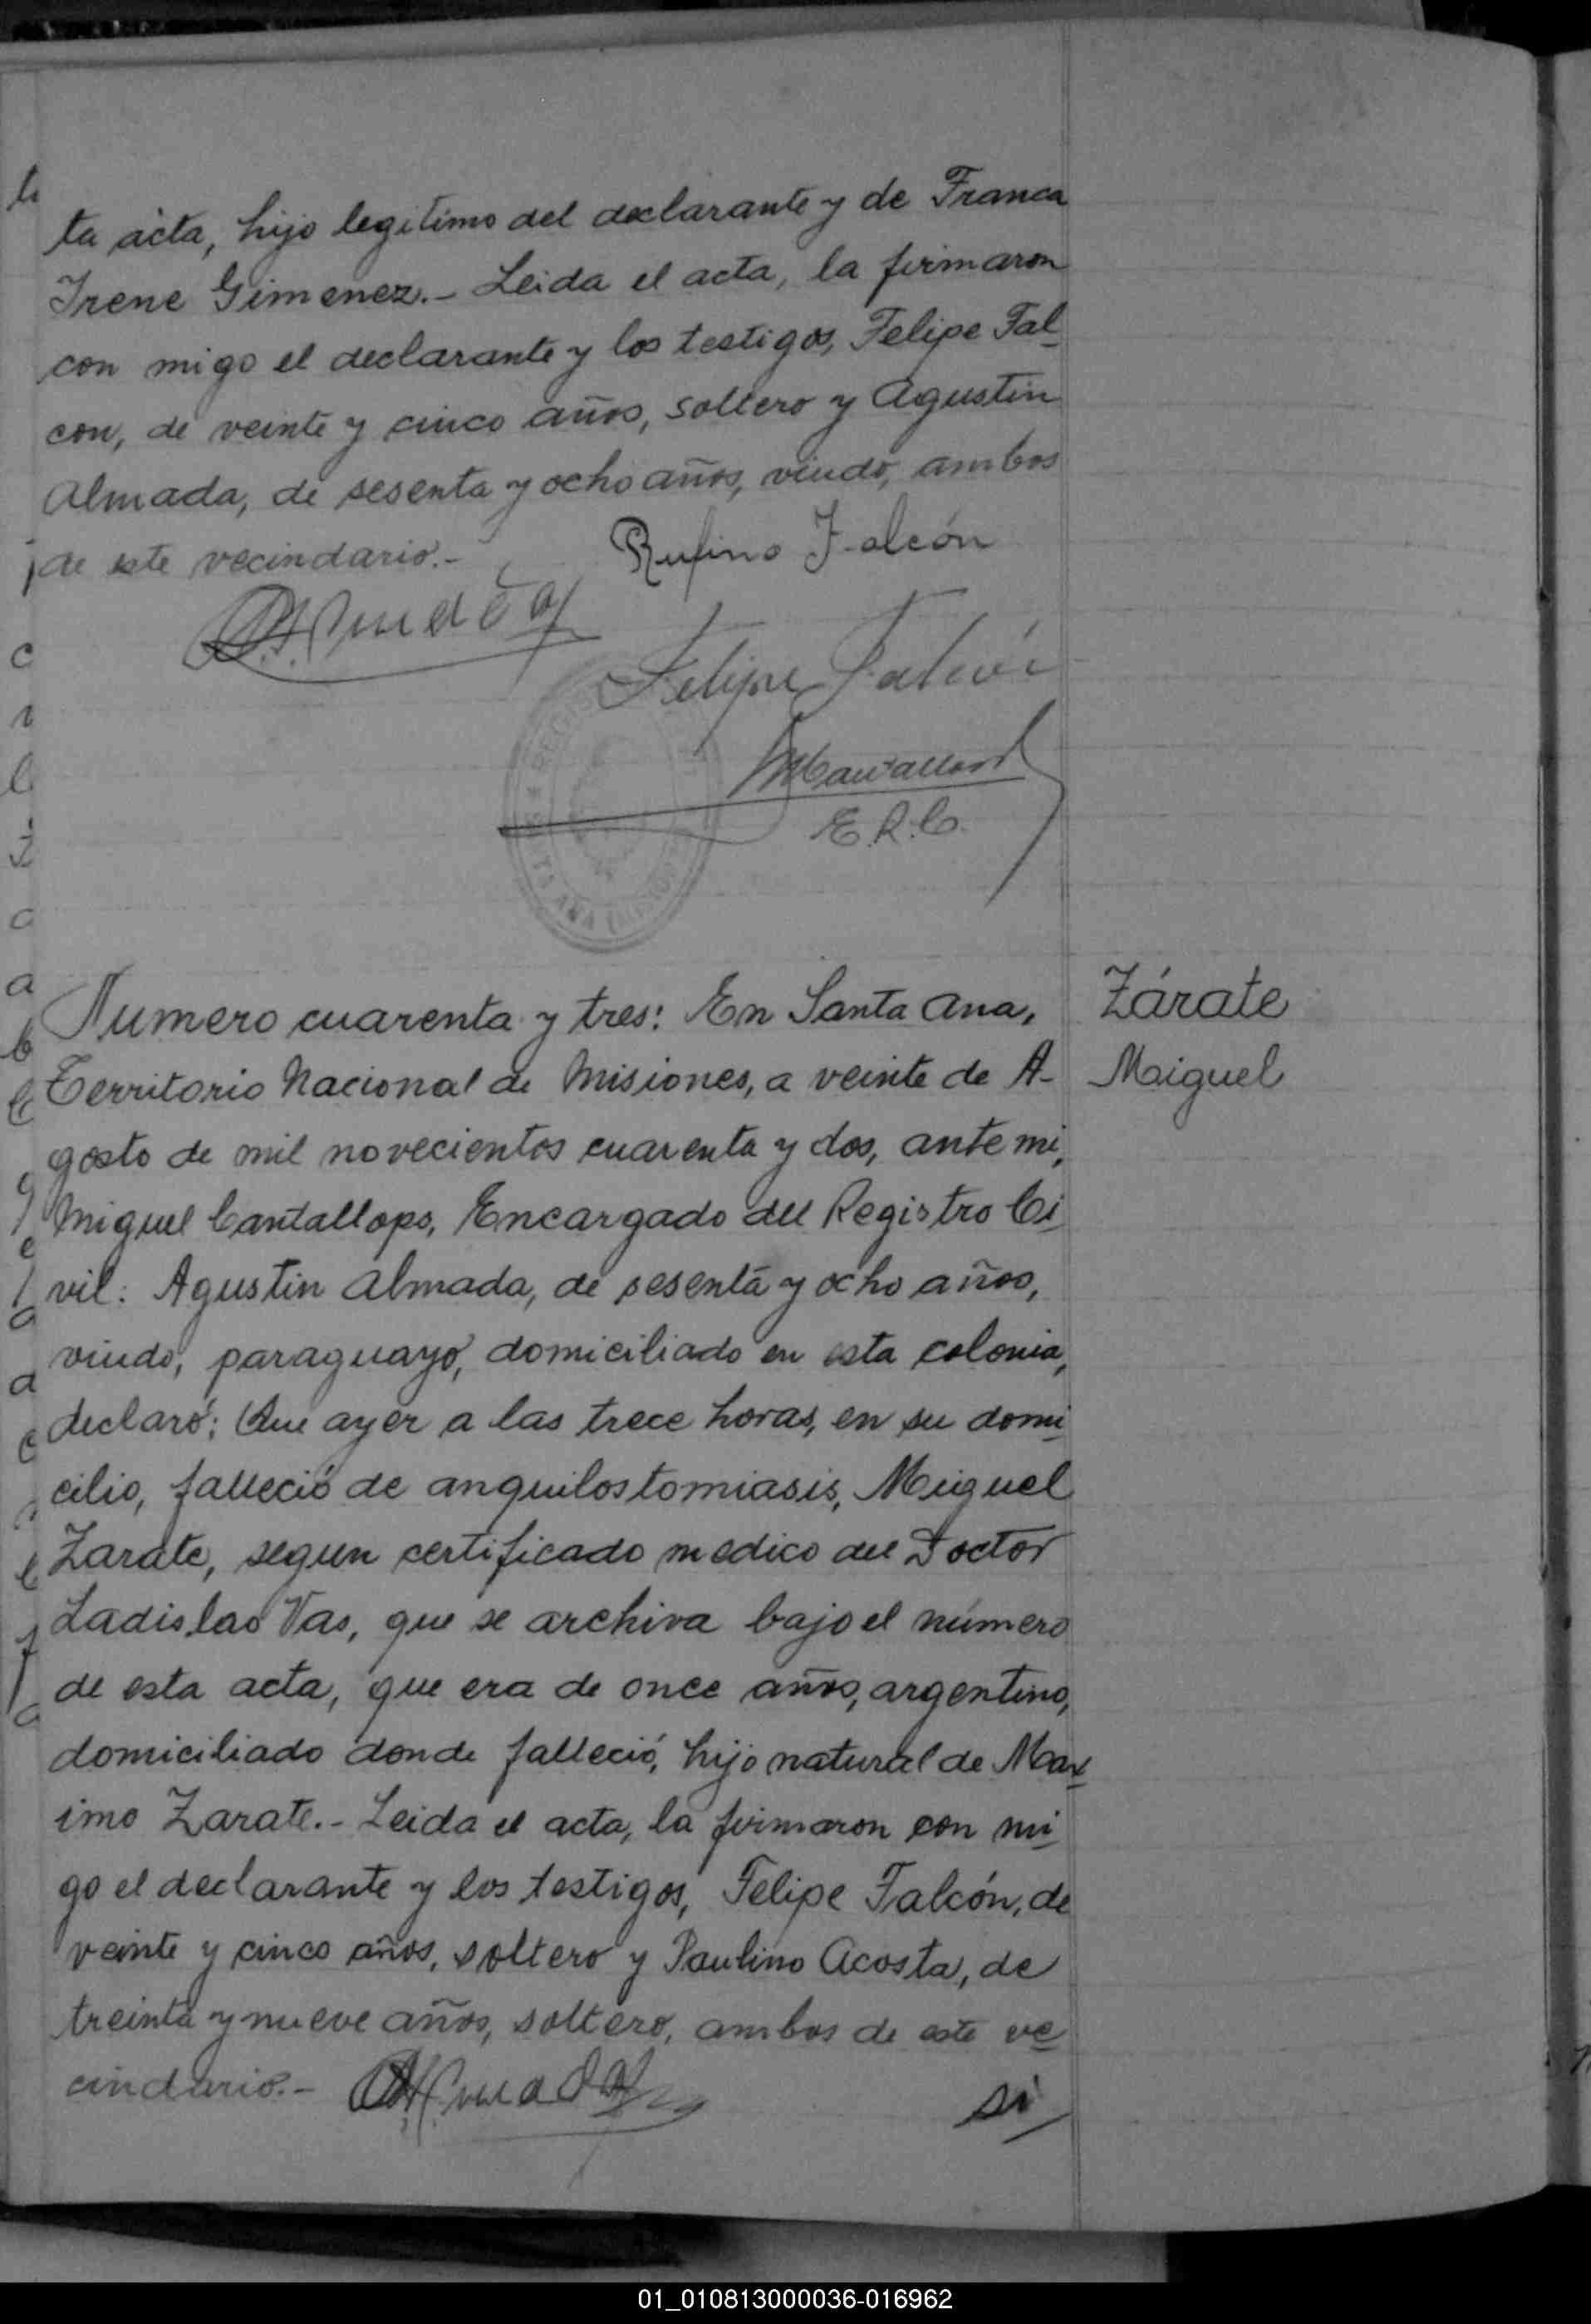 ta acta, hijo legitimo del declarante y de Franca
Irene Gimenez.- Leida el acta, la firmaron
con migo el declarante y los testigos, Felipe Fal
con, de veinte y cinco años, soltero y Agustin
Almada, de sesenta y ocho años, viudo, ambos
de este vecindario.-
Rufino Falcón
Felipe Falcón
E.R.C.
Numero cuarenta y tres: En Santa Ana,
Territorio Nacional de Misiones, a veinte de A-
gosto de mil novecientos cuarenta y dos, ante mi,
Miguel Cantallops, Encargado del Registro Ci
vil: Agustin Almada, de sesenta y ocho años,
viudo, paraguayo, domiciliado en esta colonia,
declaró: Que ayer a las trece horas, en su domi
cilio, falleció de anquilostomiasis, Miguel
Zarate, segun certificado medico del Doctor
Ladislao Vas, que se archiva bajo el número
de esta acta, que era de once años, argentino,
domiciliado donde falleció, hijo natural de Max
imo Zarate.- Leida el acta, la firmaron con mi
go el declarante y los testigos, Felipe Falcón, de
veinte y cinco años, soltero y Paulino Acosta, de
treinta y nueve años, soltero, ambos de este ve
cindario.-
si
Zárate
Miguel
01_010813000036-016962